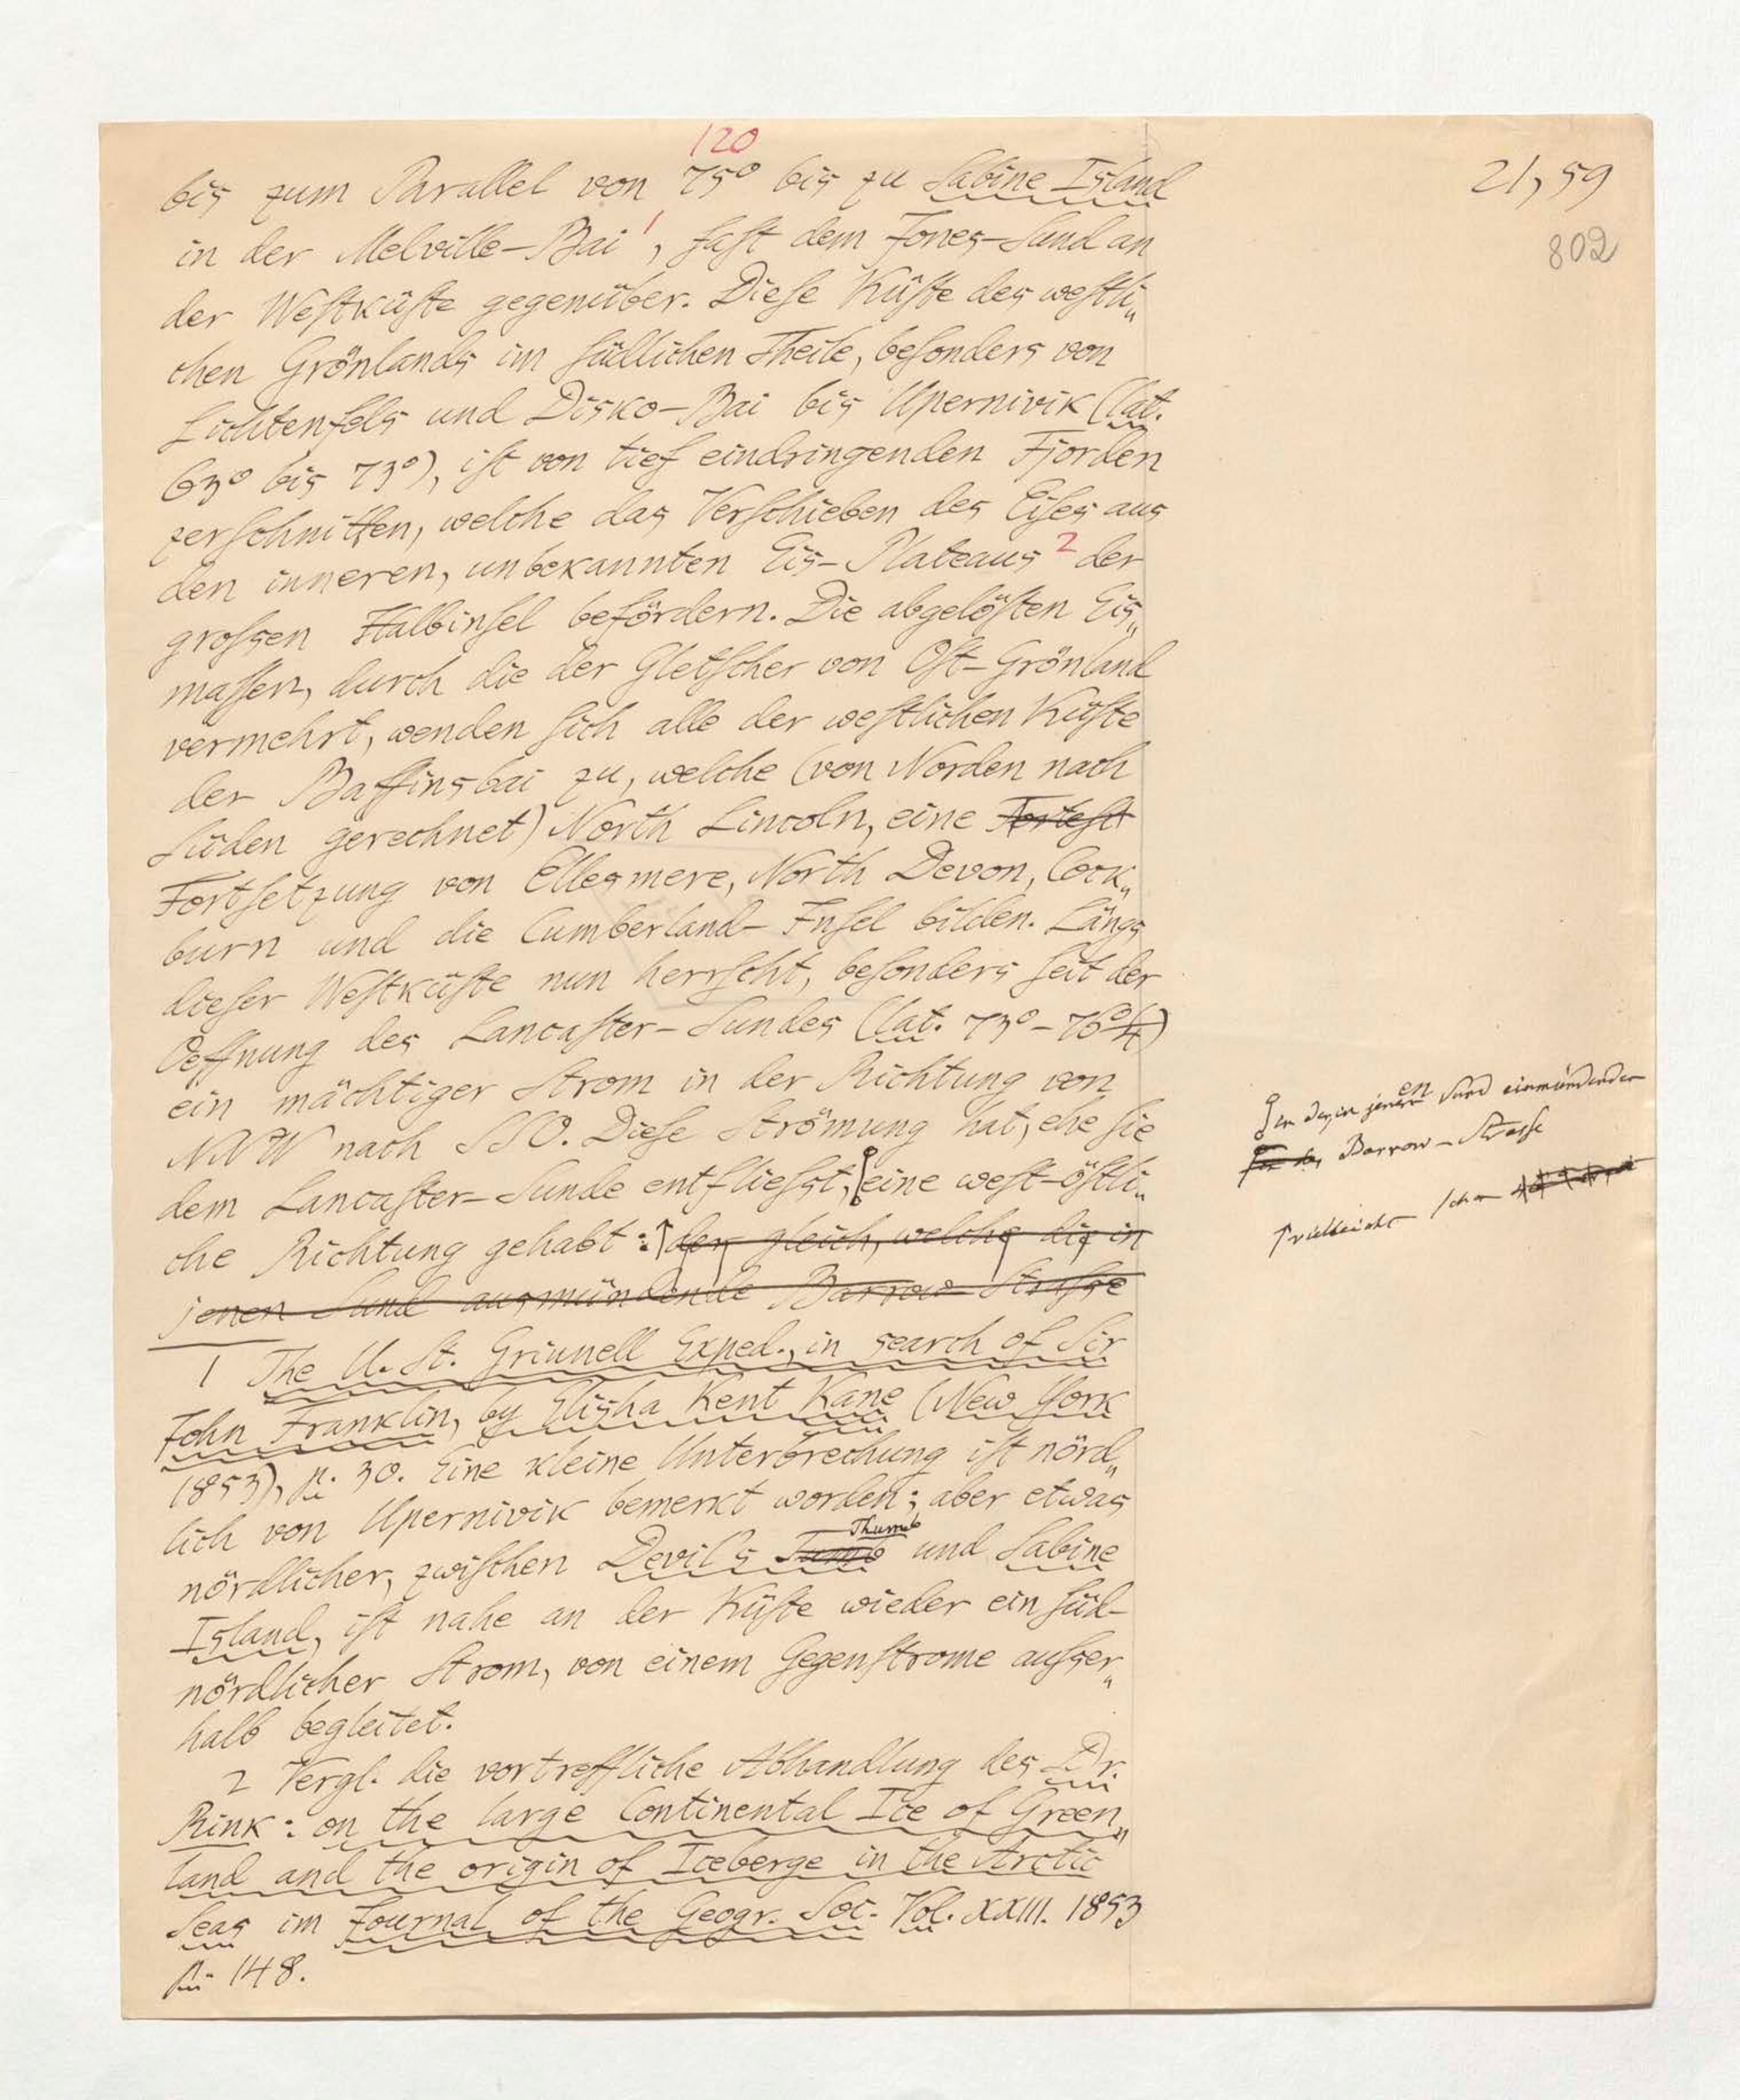 120
21,59
802
bis zum Parallel von 75° bis zu Sabine Island
in der Melville-Bai 1, fast dem Jones-Sund an
der Westküste gegenüber. Diese Küste des westli„
chen Grönlands im südlichen Theile, besonders von
Lichtenfels und Disko-Bai bis Upernivik (lat.
63° bis 73°), ist von tief eindringenden Fjorden
zerschnitten, welche das Verschieben des Eises aus
den inneren, unbekannten Eis-Plateaus 2 der
grossen Halbinsel befördern. Die abgelösten Eis„
massen, durch die der Gletscher von Ost-Grönland
vermehrt, wenden sich alle der westlichen Küste
der Baffinsbai zu, welche (von Norden nach
Süden gerechnet) North Lincoln, eine Fortest
Fortsetzung von Ellesmere, North Devon, Cock„
burn und die Cumberland-Insel bilden. Längs
dieser Westküste nun herrscht, besonders seit der
Oeffnung des Lancaster-Sundes (lat. 73°-76°)
ein mächtiger Strom in der Richtung von
NNW nach SSO. Diese Strömung hat, ehe sie
dem Lancaster-Sunde entfliesst, eine west-östli„
che Richtung gehabt: der gleich, welche die in
jenen Sund ausmündende Barrow-Strasse
in der in jenen en Sund einmündenden
Barrow-Strasse
vielleicht schon
1 The U. St. Grinnell Exped., in search of Sir
John Franklin, by Elisha Kent Kane (New York
1853), p. 30. Eine kleine Unterbrechung ist nörd„
lich von Upernivik bemerkt worden; aber etwas
nördlicher, zwischen Devil's Tumb Thumb und Sabine
Island, ist nahe an der Küste wieder ein süd-
nördlicher Strom, von einem Gegenstrome ausser„
halb begleitet.
2 Vergl. die vortreffliche Abhandlung des Dr.
Rink: on the large Continental Ice of Green„
land and the origin of Iceberge in the Arctic
Seas im Journal of the Geogr. Soc. Vol. XXIII. 1853
p. 148.